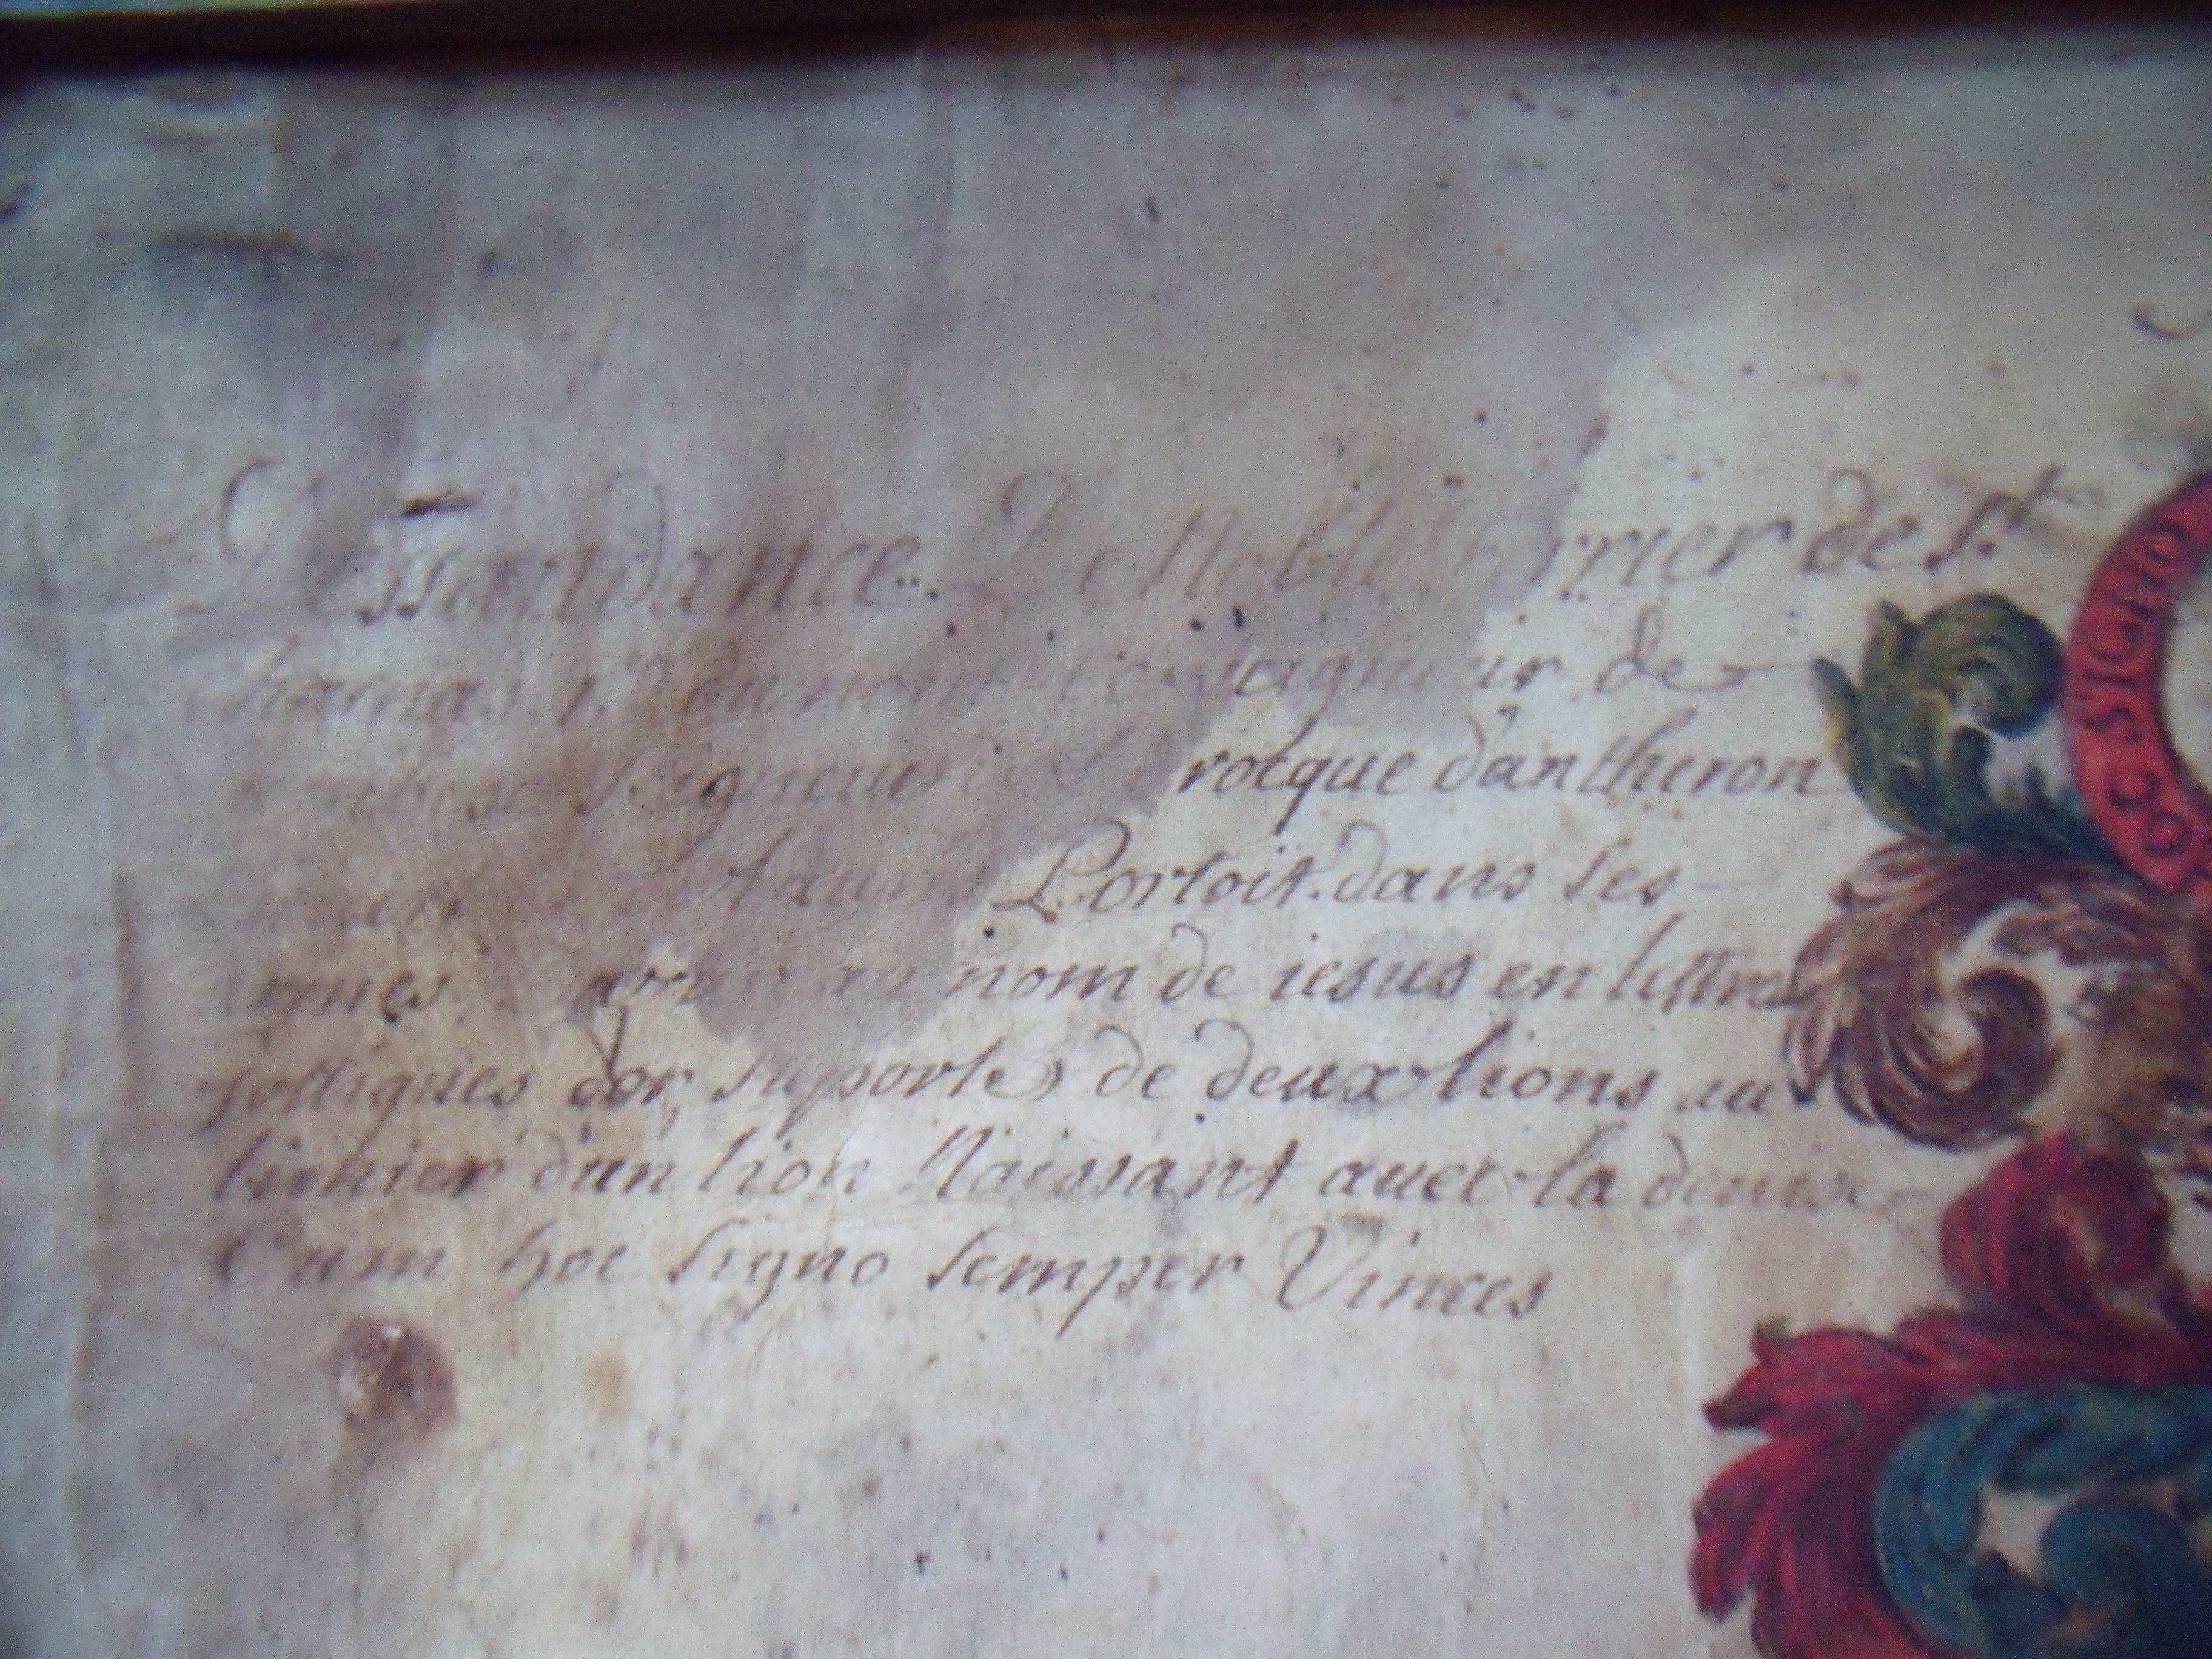 Dessandance De Noble ferrier de St.
chamas du nom seigneur de
seigneur rocque d'antheron
Portoit dans ses
armes d'azur au nom de iesus en lettres
gottiques dor suporté de deux lions au
timier d'un lion Naissant auec la deuise
Cum hoc signo semper Vinces
OC SIGNO